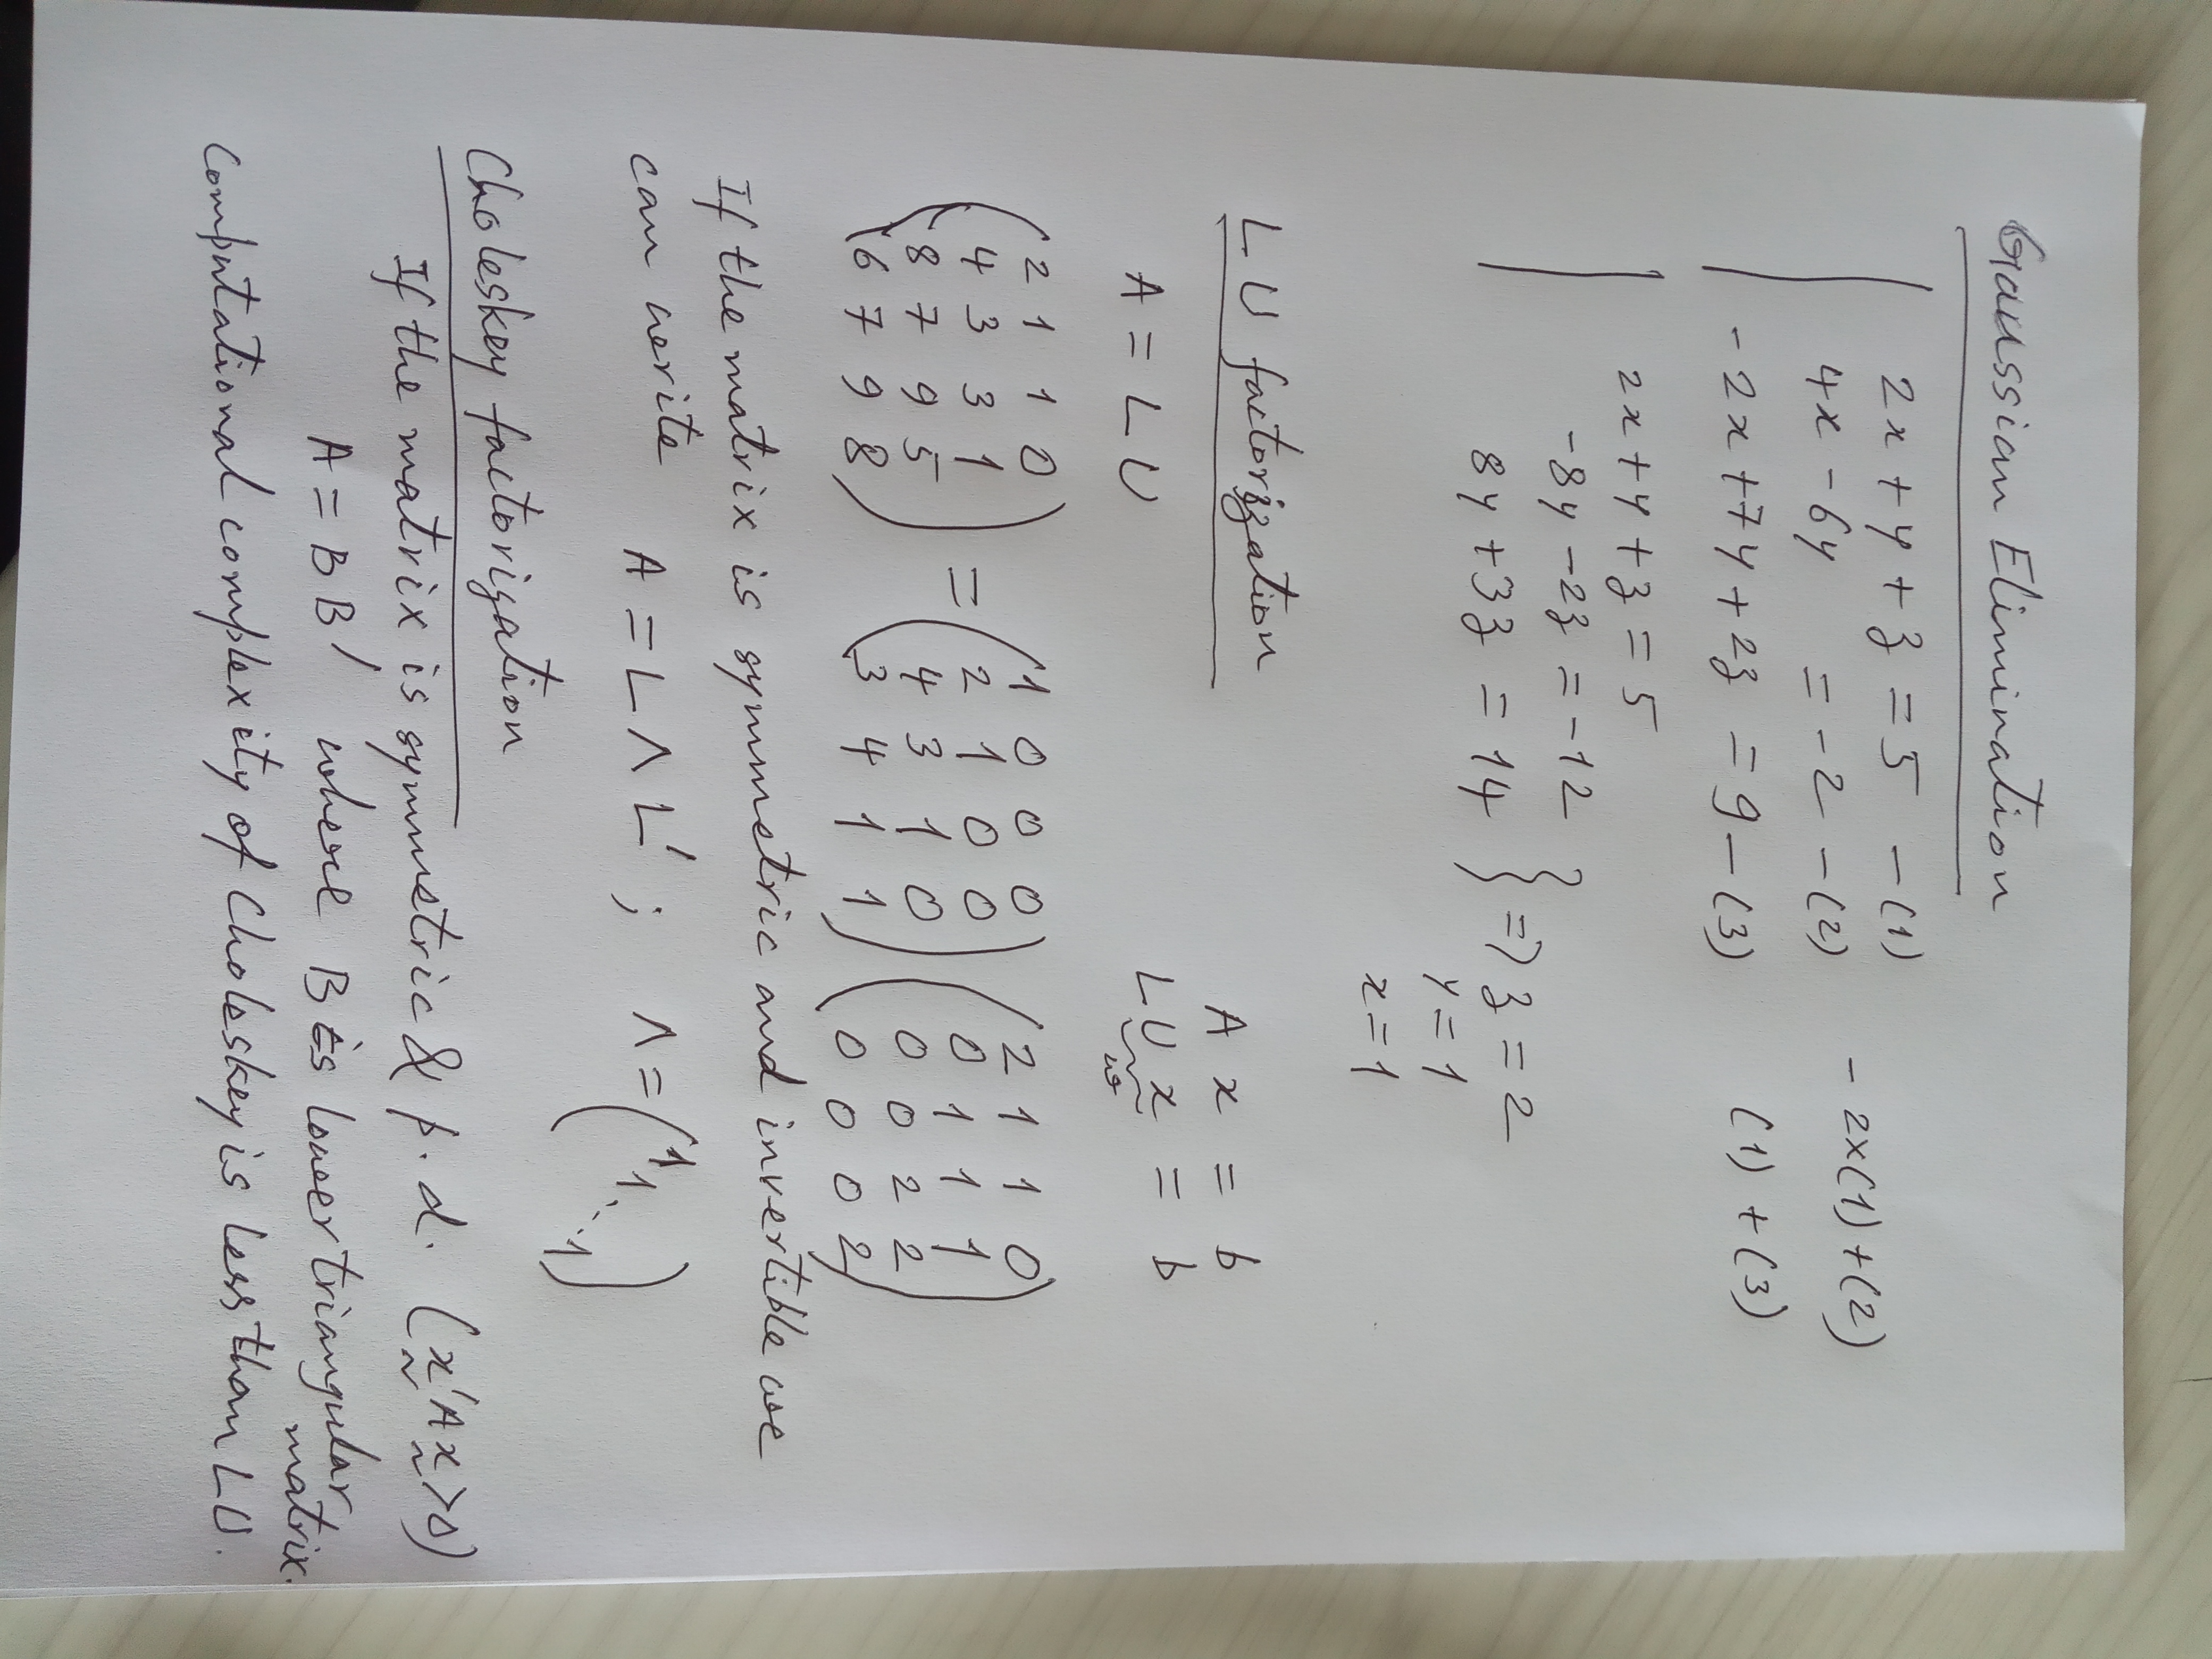 Gaussian Elimination
2x + y + z = 5 - (1)
4x - 6y = -2 - (2) - 2x(1) + (2)
- 2x + 7y + 2z = 9 - (3) (1) + (3)
2x + y + z = 5
-8y - 2z = -12
8y + 3z = 14 } => z = 2
y = 1
x = 1
LU factorization
A x = b
A = L U L U x = b
w
( 2 1 1 0 ) ( 1 0 0 0 ) ( 2 1 1 0 )
4 3 3 1 2 1 0 0 0 1 1 1
8 7 9 5 = 4 3 1 0 0 0 2 2
6 7 9 8 3 4 1 1 0 0 0 2
If the matrix is symmetric and invertible we
can write A = L Λ L' ; Λ = ( 1 1 ⋱ 1 )
Choleskey factorization
If the matrix is symmetric & p. d. (x'Ax > 0)
A = B B' where B is lower triangular
matrix.
Computational complexity of Choleskey is less than LU.